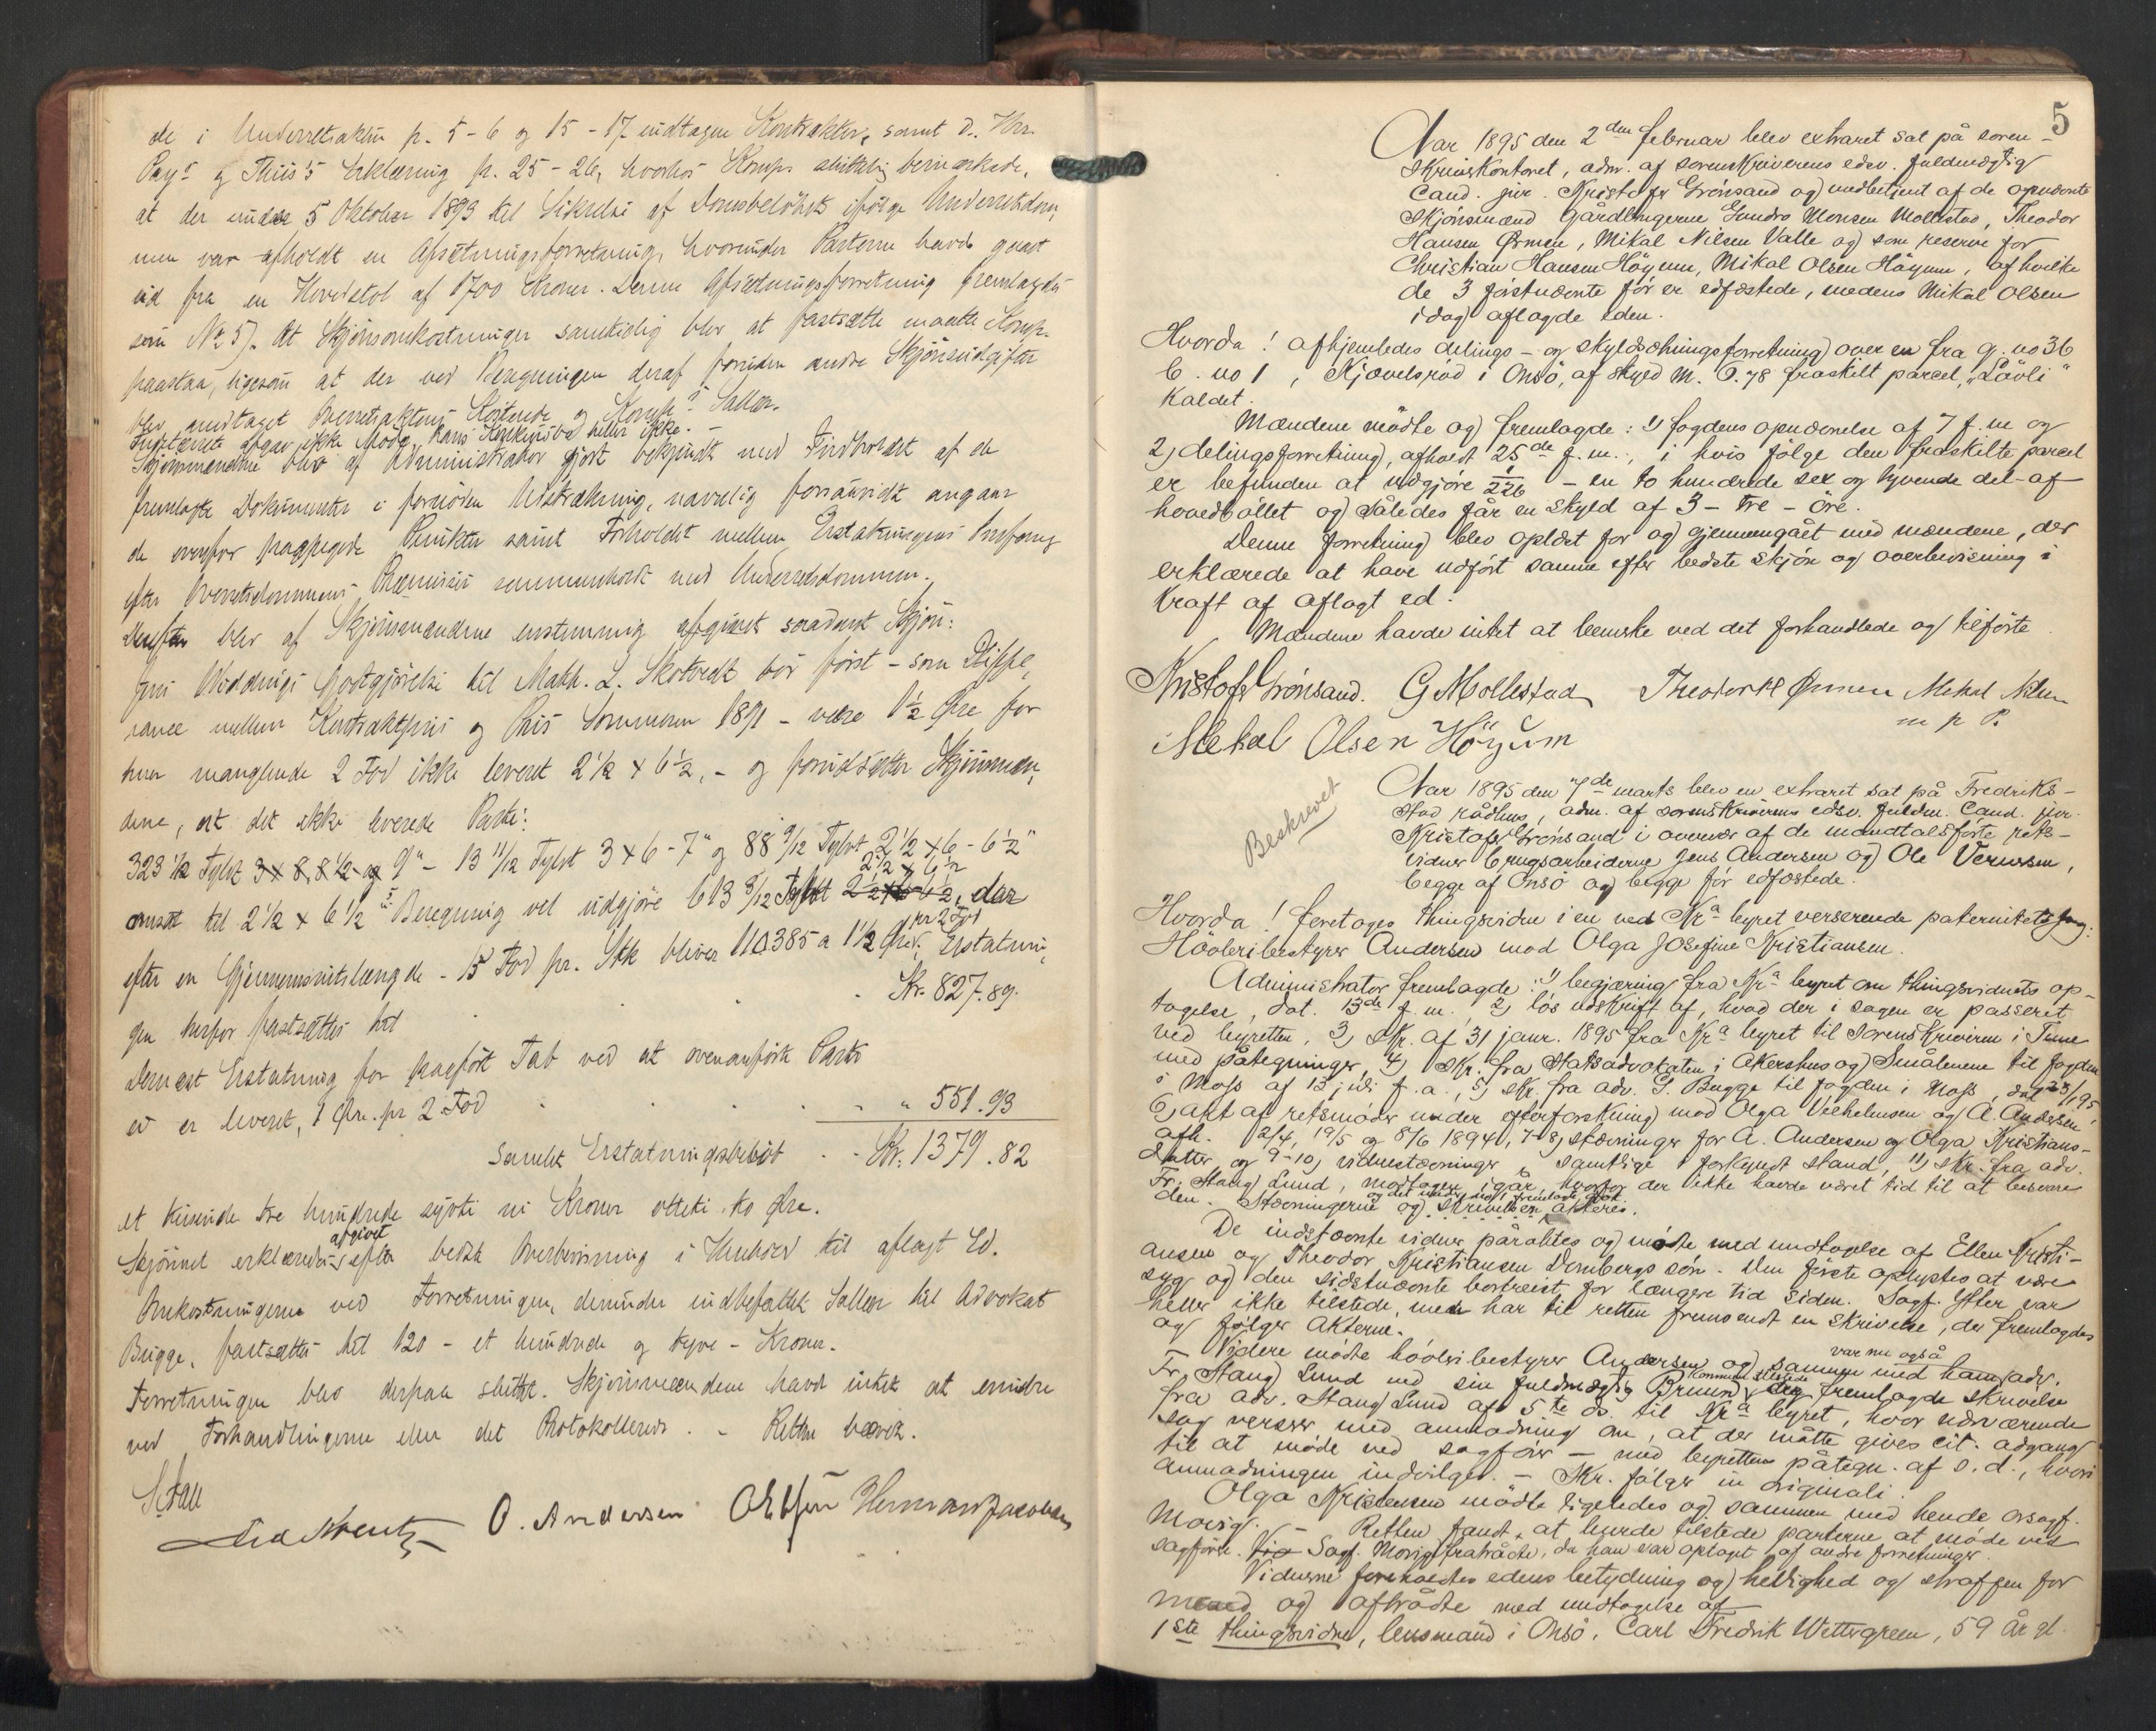 de i Underretsakten p. 5-6 og 15-17 indtagne Kontrakter, samt D. Hrr.
Pay's og Thiis's Erklæring p. 25-26, hvorhos Komp. bemærkede,
at der under 5 Oktober 1893 til Sikkelse af Domsbeløbet ifølge Underretsdom,
men var afholdt en Afsætningsforretning, hvorunder Parterne havde gaaet
ud fra en Hovedstol af 1700 Kroner. Denne Afsætningsforretning fremlagdes
som No 5). At Skjønsomkostninger samtidig blev at fastsætte maatte Komp.
paastaa, ligesom at der ved Beregningen deraf foruden andre Skjønsudgifter
blev medtaget Overretsaktens Kostende og Komp.s Sallær.
afgav ikke Møde, hans heller ikke. -
Skjønsmændene blev af Administrator gjort bekjendt med Indholdet af de
fremlagte Dokumenter i fornøden Udstrækning, navnlig forsaavidt angaar
de ovenfor Punkter samt Forholdet mellem Erstatningens Omfang
efter Overretsdommens Præmisser sammenholdt med Underretsdommen.
Derefter blev af Skjønsmændene enstemmig afgivet saadant Skjøn:
Jens Woldengs Godtgjørelse til Math. L. Skotvedt bør først - som Differ,
rance mellem Kontraktpris og Pris Sommeren 1891 - være 1½ Øre for
hver manglende 2 Fod ikke leveret 2½ x 6½, - og forudsætter Skjønsmæn,
dene, at det ikke leverede Parti:
323½ Tylvt 3 x 8, 8½ og 9" - 13 11/12 Tylvt 3 x 6 - 7" og 88 9/12 Tylvt 2½ x 6 - 6½"
2½ x 6½
omsat til 2½ x 6½"s Beregning vil udgjøre 613 3/12 Tylvt 2½ x 6 6½, der
pr 2 Fod
efter en Gjennemsnitslængde - 15 Fod pr. Stk bliver 110385 a 1½ Øre, Erstatnin,
gen herfor fastsættes til . . . Kr. 827.89.
Dernæst Erstatning for paaført Tab ved at ovenanførte Parti
ei er leveret, 1 Øre pr 2 Fod . . . . " 551.93
Samlet Erstatningsbeløb . . Kr. 1379.82
et tusinde tre hundrede sytti ni Kroner otteti to Øre.
afgivet
Skjønnet erklæredes efter bedste Overbevisning i Henhold til aflagt Ed.
Omkostningerne ved Forretningen, derunder indbefattet Sallær til Advokat
Bugge, fastsættes til 120 - et hundrede og tyve - Kroner.
Forretningen blev derpaa sluttet. Skjønsmændene havde intet at erindre
ved Forhandlingerne eller det Protokollerede. - Retten hævet.
O. Andersen Herman Jacobsen
5
Aar 1895 den 2den februar blev extraret sat på soren-
skriverkontoret, adm. af sorenskriverens edsv. fuldmægtig
Cand. jur. Kristofer Grönsand og medbetjent af de opnævnte
skjönsmænd gårdbrugerne Gundro Monsen Mollestad, Theodor
Hansen Ørmen, Mikal Nilsen Valle og som reserve for
Christian Hansen Höyum, Mikal Olsen Höyum, af hvilke
de 3 førstnævnte før er edfæstede, medens Mikal Olsen
idag aflagde eden.
Hvorda! afhjemledes delings- og skyldsætningsforretning over en fra g. no 36
b. no 1, Kjævelsröd i Onsö, af skyld M. 6.78 fraskilt parcel, "Lövli"
kaldet.
Mændene mödte og fremlagde: 1) fogdens opnævnelse af 7 f. m. og
2) delingsforretning, afholdt 25de f. m., i hvis fölge den fraskilte parcel
er befunden at udgjöre 1/226 - en to hundrede sex og tyvende del - af
hovedböllet og således får en skyld af 3 - tre - öre.
Denne forretning blev oplæst for og gjennemgået med mændene, der
erklærede at have udfört samme efter bedste skjön og overbevisning i
kraft af aflagt ed.
Mændene havde intet at bemerke ved det forhandlede og tilförte.
Kristofer Grönsand. G Mollestad Theodor H Ørmen Mekal Nilsen
m p P.
Mekal Olsen Höyum
Beskrevet
Aar 1895 den 7de marts blev en extraret sat på Fredriks-
stad rådhus, adm. af sorenskriverens edsv. fuldm. Cand. jur.
Kristofer Grönsand i overvær af de mandtalsførte rets-
vidner brugsarbeiderne Jens Andersen og Ole Verersen,
begge af Onsö og begge för edfæstede.
Hvorda! foretoges thingsvidne i en ved Kra byret verserende paternitetssag:
Hövleribestyrer Andersen mod Olga Josefine Kristiansen.
Administrator fremlagde: 1) begjæring fra Kra byret om thingsvidnets op-
tagelse, dat. 13de f. m. 2) lös udskrift af, hvad der i sagen er passeret
ved byretten, 3) skr. af 31 janr. 1895 fra Kra byret til sorenskriveren i Tune
med påtegninger, 4) skr. fra statsadvokaten i Akershus og Smålenene til fogden
i Moss af 13 juli f. a., 5) skr. fra adv. G. Bugge til fogden i Moss, dat 23/1 95,
6) akt af retsmöder under efterforskning mod Olga Vilhelmsen og A Andersen
afh. 12/4, 19/5 og 8/6 1894, 7-8) stævninger for A. Andersen og Olga Kristians-
datter og 9-10) vidnestævninger, samtlige i forkyndt stand, 11) skr. fra adv.
Fr. Stang Lund, modtagen igår, hvorfor der ikke havde været tid til at besvare
den. Stævningerne og skrivelsen akteres.
De indstævnte vidner påråbtes og mödte med undtagelse af Ellen Kristi-
ansen og Theodor Kristiansen Dombergs sön. Den förste oplystes at være
syg og den sidstnævnte bortreist for længere tid siden. Sagf. Ytter var
heller ikke tilstede, men har til retten fremsendt en skrivelse, der fremlagdes
og fölger akterne.
var nu også
Videre mödte hövleribestyrer Andersen og sammen med ham adv.
kommen tilstede
Fr. Stang Lund ved sin fuldmægtig Bruun, der fremlagde skrivelse
fra adv. Stang Lund af 5te ds. til Kra byret, hvor nærværende
sag verserer med anmodning om, at der måtte gives cit. adgang
til at möde ved sagförer - med byrettens påtegn. af s. d., hvori
anmodningen indvilges. - Skr. fölger in originali.
Olga Kristensen mödte ligeledes og sammen med hende orsagf.
Morsig. - Retten fandt at burde tilstede parterne at möde ved
sagförer. Sagf. Morsig fratrådte, da han var optaget af andre forretninger.
Vidnerne foreholdtes edens betydning og hellighed og straffen for
mened og aftrådte med undtagelse af
1ste thingsvidne, lensmand i Onsö, Carl Fredrik Wettergreen, 59 år gl.